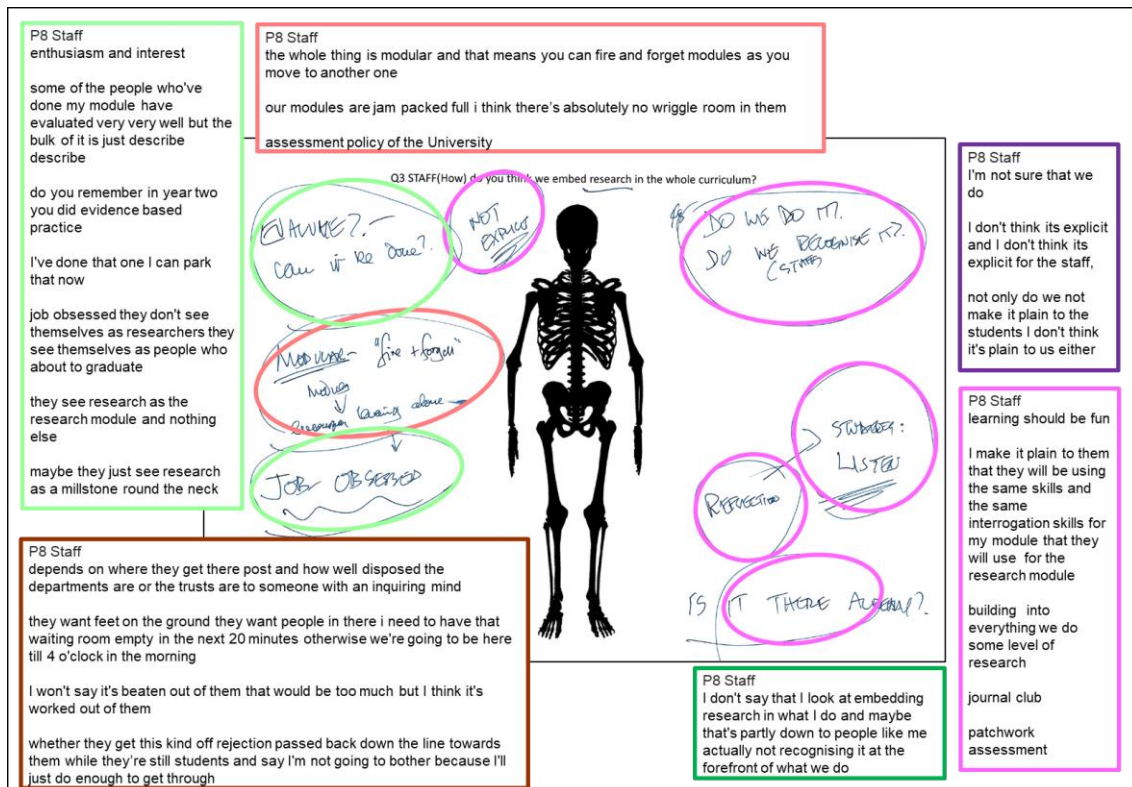 P8 Staff
enthusiasm and interest
some of the people who've
done my module have
evaluated very very well but the
bulk of it is just describe
describe
do you remember in year two
you did evidence based
practice
I've done that one I can park
that now
job obsessed they don't see
themselves as researchers they
see themselves as people who
about to graduate
they see research as the
research module and nothing
else
maybe they just see research
as a millstone round the neck
P8 Staff
the whole thing is modular and that means you can fire and forget modules as you
move to another one
our modules are jam packed full i think there's absolutely no wriggle room in them
assessment policy of the University
Q3 STAFF(How) do you think we embed research in the whole curriculum?
can it be done?
NOT
EXPLICIT
MODULAR - "fire + forget"
Modules
JOB OBSESSED
DO WE DO IT?
DO WE RECOGNISE IT?
(STAFF)
STUDENTS:
LISTEN
REFLECTION
IS IT THERE ALREADY?
P8 Staff
I'm not sure that we
do
I don't think its explicit
and I don't think its
explicit for the staff,
not only do we not
make it plain to the
students I don't think
it's plain to us either
P8 Staff
learning should be fun
I make it plain to them
that they will be using
the same skills and
the same
interrogation skills for
my module that they
will use for the
research module
building into
everything we do
some level of
research
journal club
patchwork
assessment
P8 Staff
depends on where they get there post and how well disposed the
departments are or the trusts are to someone with an inquiring mind
they want feet on the ground they want people in there i need to have that
waiting room empty in the next 20 minutes otherwise we're going to be here
till 4 o'clock in the morning
I won't say it's beaten out of them that would be too much but I think it's
worked out of them
whether they get this kind off rejection passed back down the line towards
them while they're still students and say I'm not going to bother because I'll
just do enough to get through
P8 Staff
I don't say that I look at embedding
research in what I do and maybe
that's partly down to people like me
actually not recognising it at the
forefront of what we do